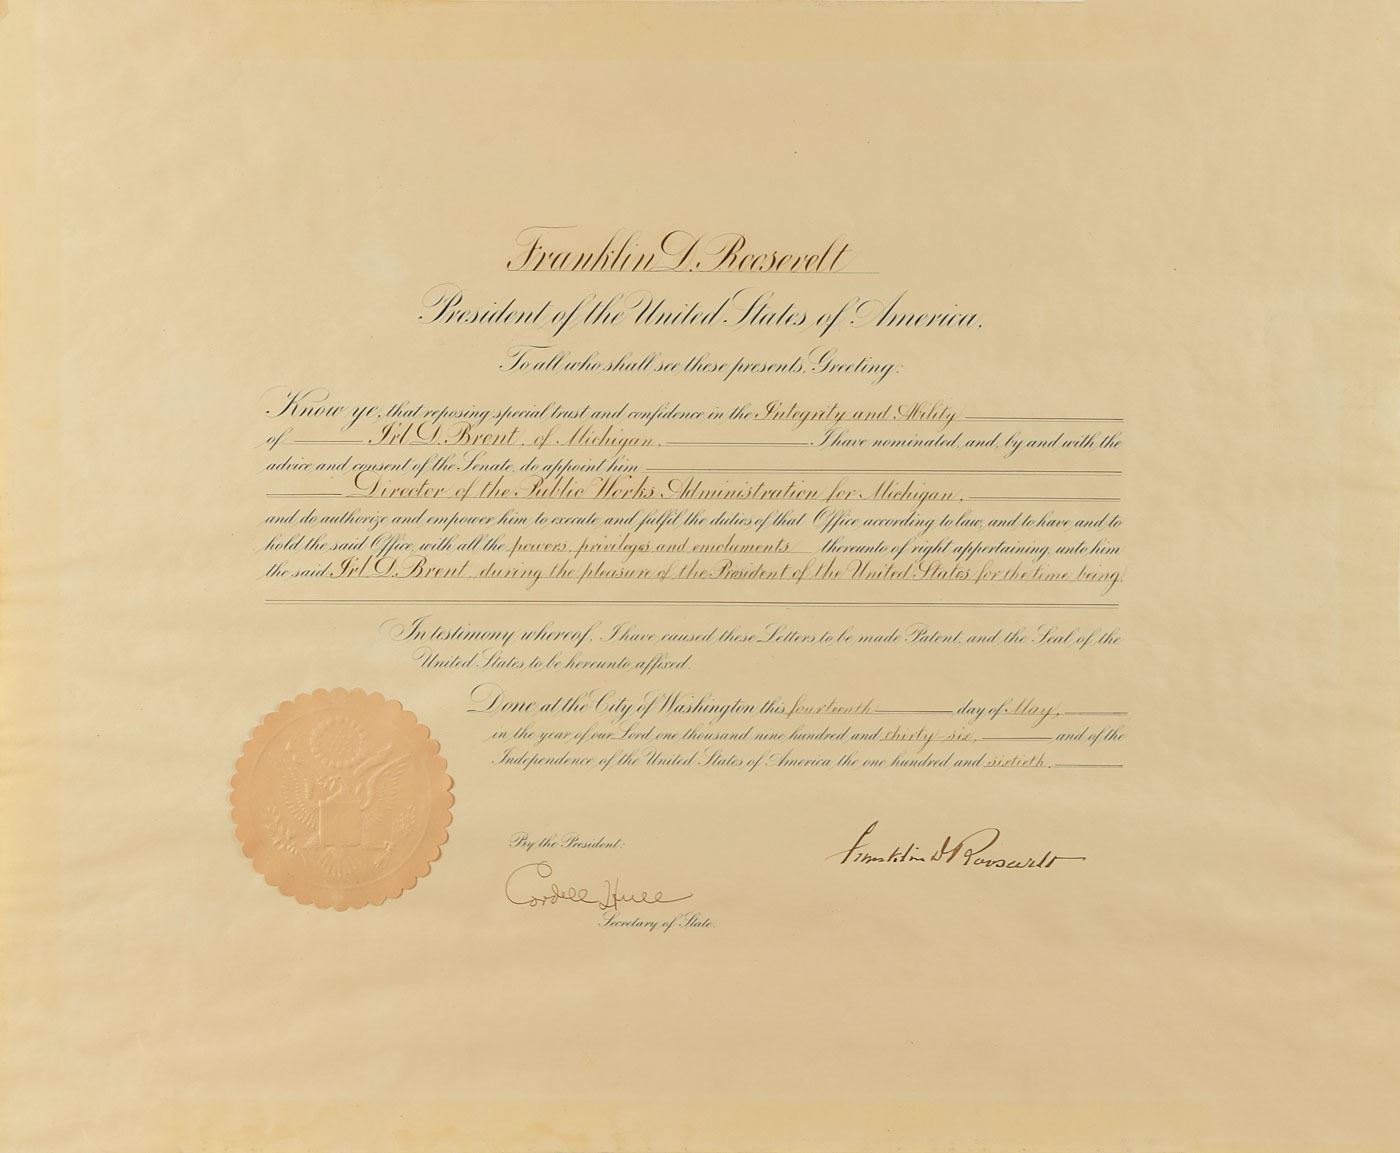 Franklin D. Roosevelt
President of the United States of America.
To all who shall see these presents, Greeting:
Know ye, that reposing special trust and confidence in the Integrity and Ability
of Irl D. Brent, of Michigan, I have nominated, and, by and with the
advice and consent of the Senate, do appoint him
Director of the Public Works Administration for Michigan,
and do authorize and empower him to execute and fulfil the duties of that Office according to law, and to have and to
hold the said Office, with all the powers, privileges and emoluments thereunto of right appertaining, unto him
the said Irl D. Brent, during the pleasure of the President of the United States for the time being.
In testimony whereof, I have caused these Letters to be made Patent, and the Seal of the
United States to be hereunto affixed.
Done at the City of Washington this fourteenth day of May,
in the year of our Lord one thousand nine hundred and thirty-six, and of the
Independence of the United States of America the one hundred and sixtieth.
By the President:
Franklin D Roosevelt
Cordell Hull
Secretary of State.